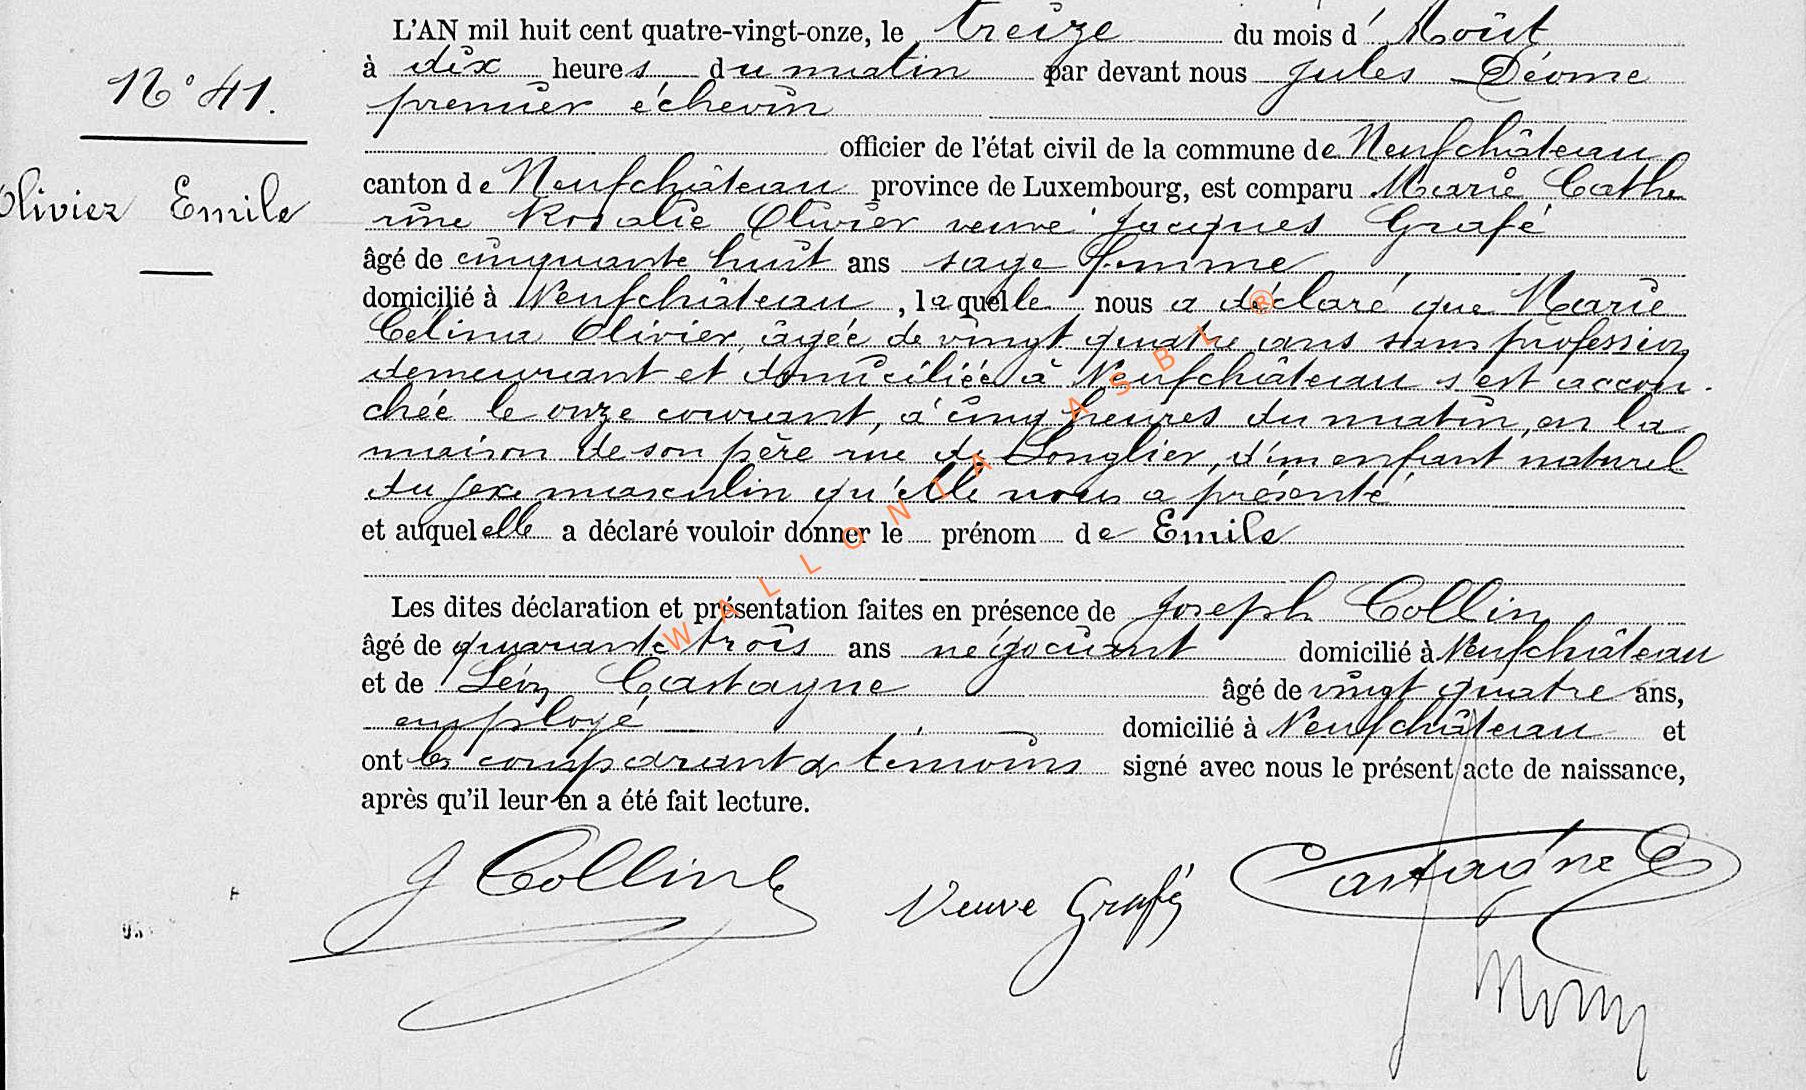 L'AN mil huit cent quatre-vingt-onze, le treize du mois d'Août
N° 41.
à dix heures du matin par devant nous Jules Déome
premier échevin
officier de l'état civil de la commune de Neufchâteau
Olivier Emile
canton de Neufchâteau province de Luxembourg, est comparu Marie Cathe
rine Rosalie Olivier veuve Jacques Grafé
âgé de cinquante huit ans sage femme
domicilié à Neufchâteau, laquelle nous a déclaré que Marie
Célina Olivier, âgée de vingt quatre ans sans profession
demeurant et domiciliée à Neufchâteau s'est accou-
chée le onze courant, à cinq heures du matin, en la
maison de son père rue de Longlier, d'un enfant naturel
du sexe masculin qu'elle nous a présenté
et auquel elle a déclaré vouloir donner le prénom de Emile
Les dites déclaration et présentation faites en présence de Joseph Collin
âgé de quarante trois ans négociant domicilié à Neufchâteau
et de Léon Castagne âgé de vingt quatre ans,
employé domicilié à Neufchâteau et
ont les comparant & témoins signé avec nous le présent acte de naissance,
après qu'il leur en a été fait lecture.
J Collin
Veuve Grafé
Castagne
WALLONIA ASBL ®